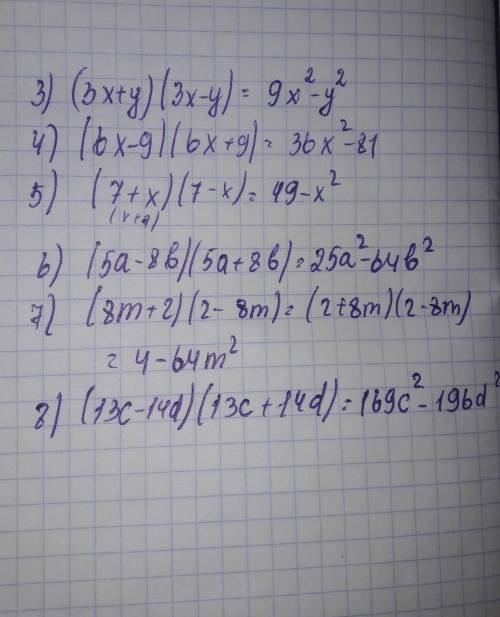 3) (3x+y)(3x-y) = 9x²-y²
4) (6x-9)(6x+9) = 36x²-81
5) (7+x)(7-x) = 49-x²
6) (5a-8b)(5a+8b) = 25a²-64b²
7) (8m+2)(2-8m) = (2+8m)(2-8m)
= 4-64m²
8) (13c-14d)(13c+14d) = 169c²-196d²